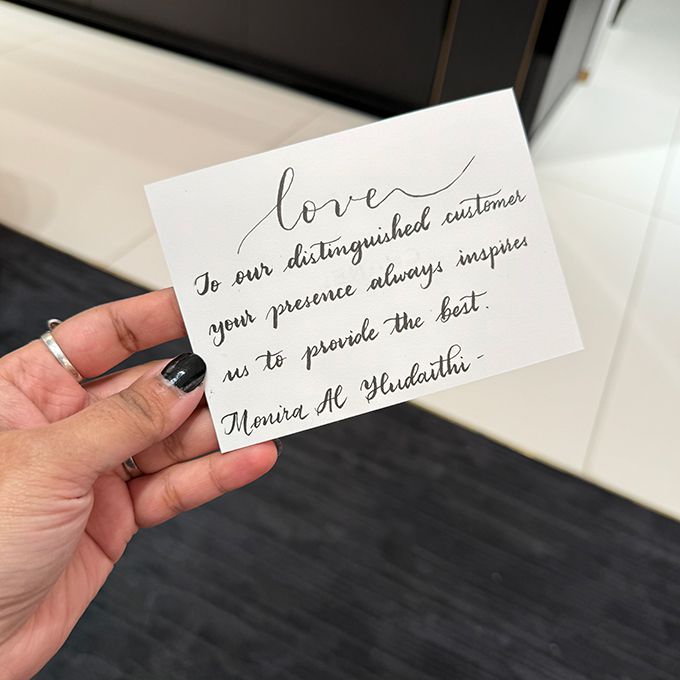 love
To our distinguished customer
your presence always inspires
us to provide the best.
Monira Al Hudaithi -